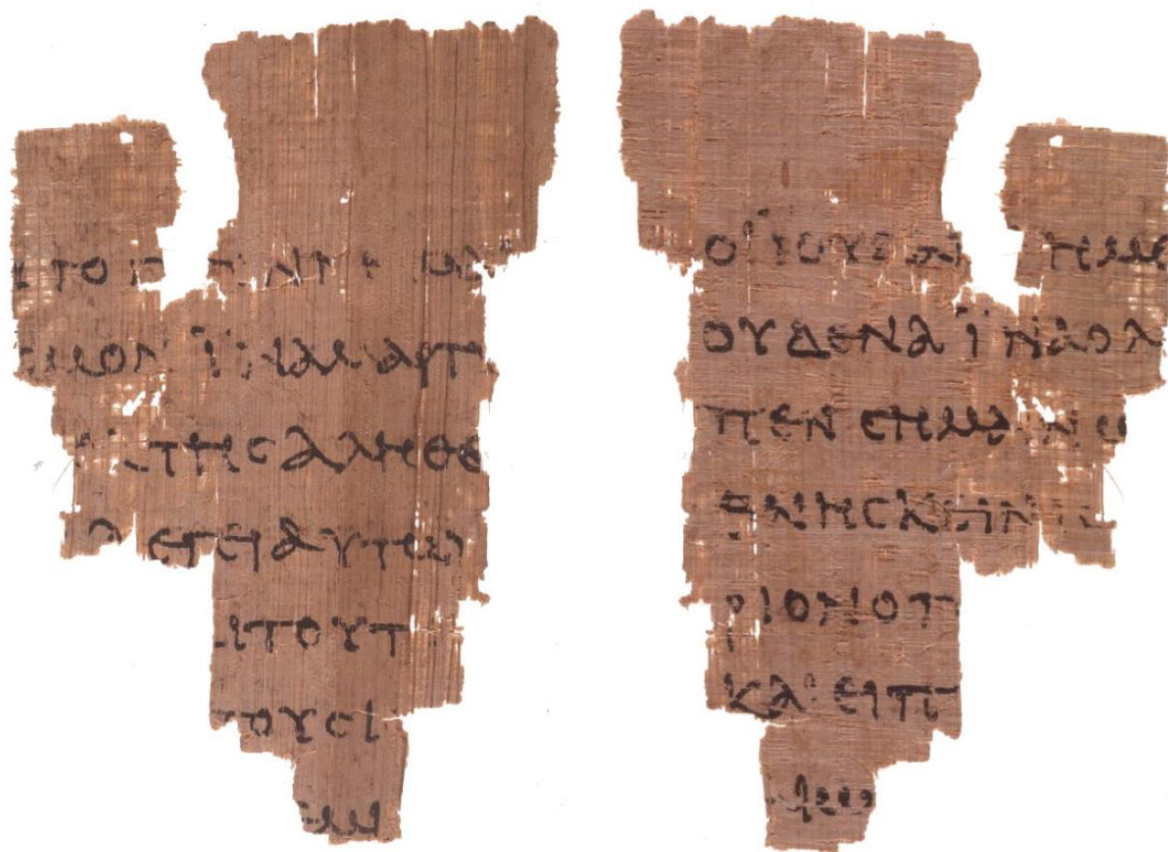 ΤΟ Γ ΝΝΗ ΑΙ
ΜΟΝΪΝΑΜΑΡΤΥ
ΤΗϹΑΛΗΘΕ
ΛΕΓΕΙΑΥΤΩ
ΑΙΤΟΥΤ
ΤΟΥϹΙ
ΕΜΙ
ΟΙΪΟΥΔΑΙ ΗΜΕ
ΟΥΔΕΝΑΪΝΑΟΛ
ΠΕΝϹΗΜΑΙΝΩ
ΘΝΗϹΚΕΙΝΙϹ
ΡΙΟΝΟΠ
ΚΑΙΕΙΠ
ΑΙΩ